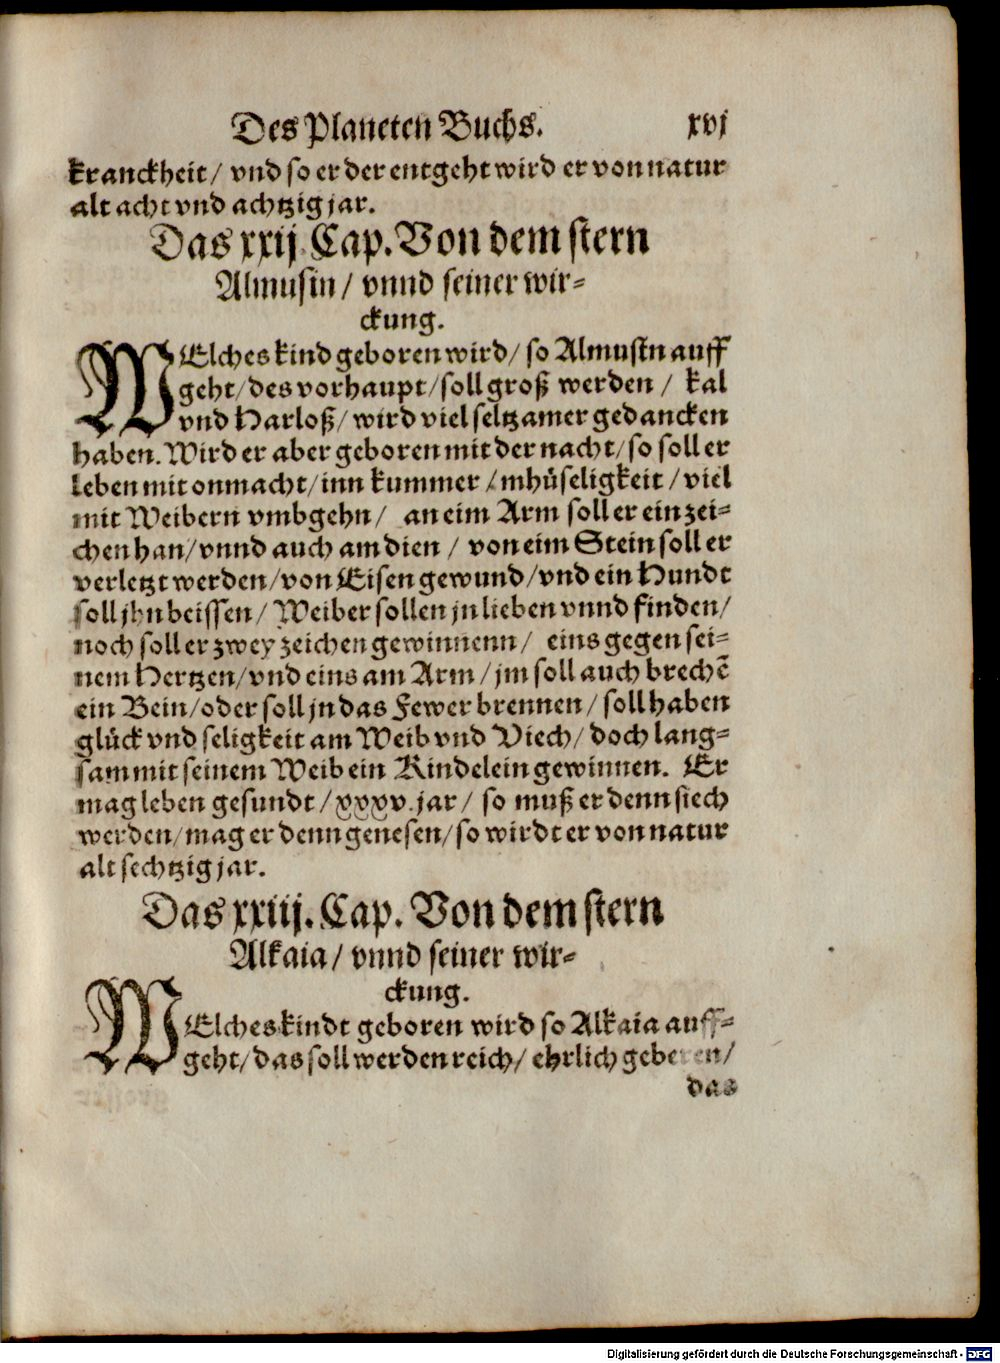 Des Planeten Buchs. xvj
kranckheit/ vnd so er der entgeht wird er von natur
alt acht vnd achtzig jar.
Das xxij. Cap. Von dem stern
Almusin/ vnnd seiner wir-
ckung.
WElches kind geboren wird/ so Almusin auff
geht/ des vorhaupt/ soll groß werden / kal
vnd Harloß/ wird viel seltzamer gedancken
haben. Wird er aber geboren mit der nacht/ so soll er
leben mit onmacht/ inn kummer / mhüseligkeit / viel
mit Weibern vmbgehn/ an eim Arm soll er ein zei-
chen han/ vnnd auch am dien / von eim Stein soll er
verletzt werden/ von Eisen gewund/ vnd ein Hundt
soll jhn beissen/ Weiber sollen jn lieben vnnd finden/
noch soll er zwey zeichen gewinnenn/ eins gegen sei-
nem Hertzen/ vnd eins am Arm / jm soll auch brechē
ein Bein/ oder soll jn das Fewer brennen/ soll haben
glück vnd seligkeit am Weib vnd Viech/ doch lang-
sam mit seinem Weib ein Kindelein gewinnen. Er
mag leben gesundt/ xxxv. jar/ so muß er denn siech
werden/ mag er denn genesen/ so wirdt er von natur
alt sechtzig jar.
Das xxiij. Cap. Von dem stern
Alkaia/ vnnd seiner wir-
ckung.
WElches kindt geboren wird so Alkaia auff-
geht/ das soll werden reich/ ehrlich geberen/
das
Digitalisierung gefördert durch die Deutsche Forschungsgemeinschaft - DFG